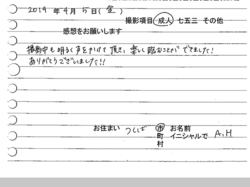 2019年4月5日(金)
撮影項目 成人 七五三 その他
感想をお願いします
撮影中も明るく声をかけて頂き、楽しく臨むことができました!
ありがとうございました!!
お住まい つくば 市 町 村 お名前 イニシャルで A.H